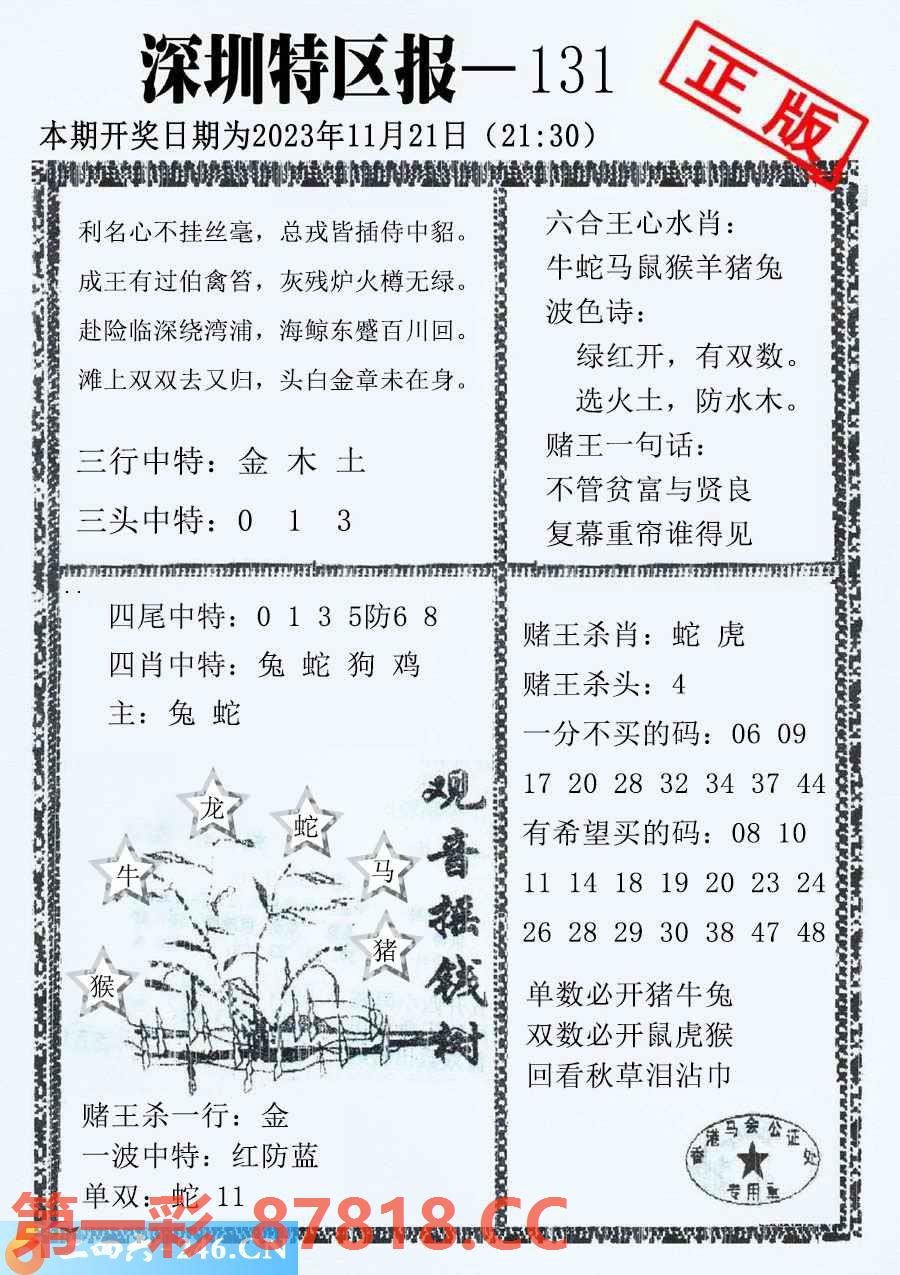 深圳特区报—131
正版
本期开奖日期为2023年11月21日（21:30）
利名心不挂丝毫，总戎皆插侍中貂。
成王有过伯禽笞，灰残炉火樽无绿。
赴险临深绕湾浦，海鲸东蹙百川回。
滩上双双去又归，头白金章未在身。
三行中特：金 木 土
三头中特：0 1 3
六合王心水肖：
牛蛇马鼠猴羊猪兔
波色诗：
绿红开，有双数。
选火土，防水木。
赌王一句话：
不管贫富与贤良
复幕重帘谁得见
四尾中特：0 1 3 5防6 8
四肖中特：兔 蛇 狗 鸡
主：兔 蛇
龙
蛇
牛
马
猪
猴
观音摇钱树
赌王杀一行：金
一波中特：红防蓝
单双：蛇 11
赌王杀肖：蛇 虎
赌王杀头：4
一分不买的码：06 09
17 20 28 32 34 37 44
有希望买的码：08 10
11 14 18 19 20 23 24
26 28 29 30 38 47 48
单数必开猪牛兔
双数必开鼠虎猴
回看秋草泪沾巾
香港马会公证处
专用章
第一彩 87818.CC
246.CN